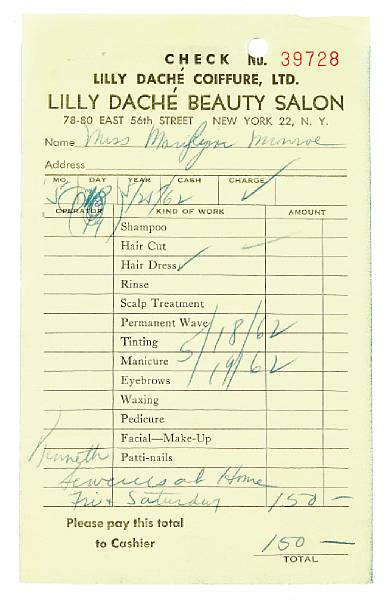 CHECK No. 39728
LILLY DACHÉ COIFFURE, LTD.
LILLY DACHÉ BEAUTY SALON
78-80 EAST 56th STREET NEW YORK 22, N. Y.
Name Miss Marylyn Monroe
Address
MO. DAY YEAR CASH CHARGE
5/21/62 ✓
OPERATOR KIND OF WORK AMOUNT
Shampoo
Hair Cut —
Hair Dress ✓
Rinse
Scalp Treatment
Permanent Wave
Tinting 5/18/62
Manicure
Eyebrows 5/19/62
Waxing
Pedicure
Facial—Make-Up
Kenneth Patti-nails
Services at Home
Fri & Saturday 150 —
Please pay this total
to Cashier 150 —
TOTAL